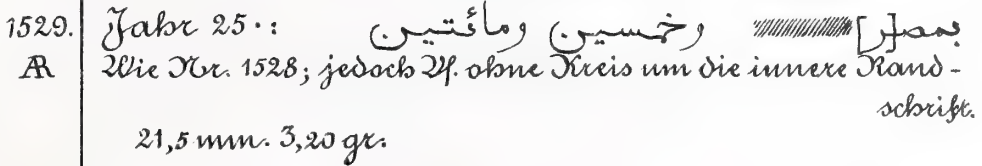 1529. Jahr 25·: بمصـ[ـر] وخمسين ومائتين
AR Wie Nr. 1528; jedoch Af. ohne Kreis um die innere Rand-
schrift.
21,5 mm. 3,20 gr.